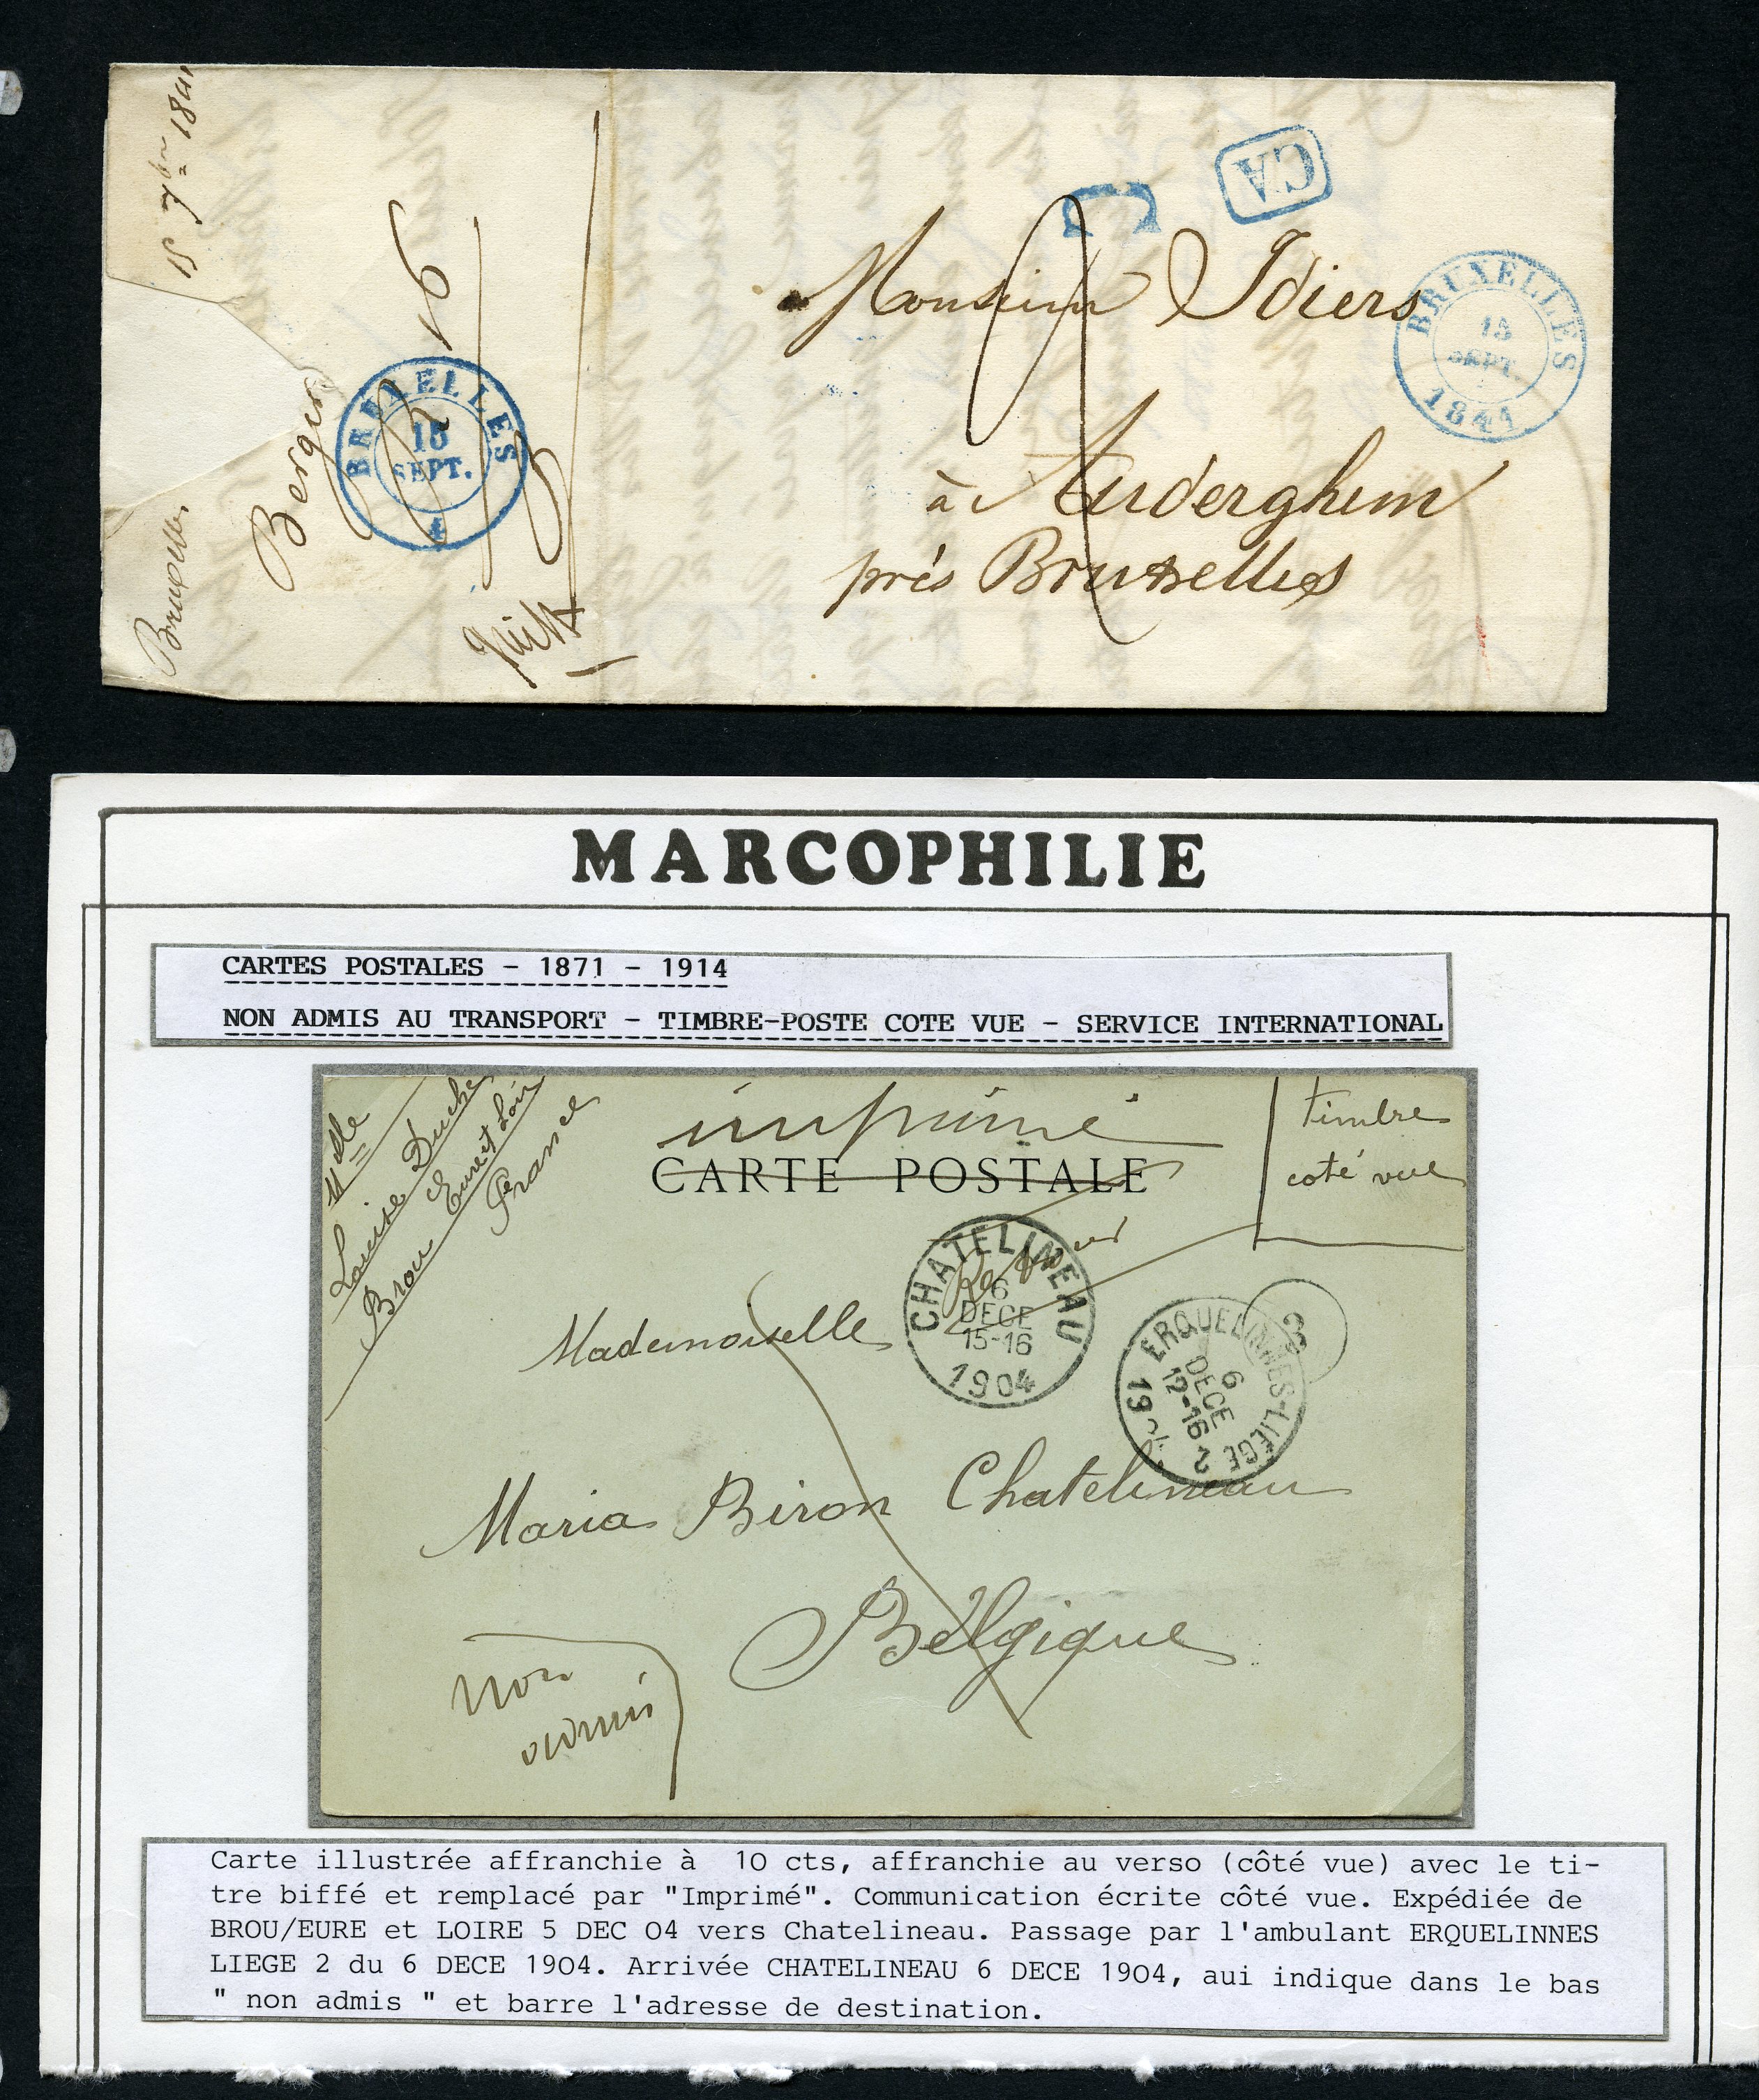 15 7bre 1841
Bruxelles
Berger
16
BRUXELLES
15
SEPT.
CA
BRUXELLES
15
SEPT.
1841
Monsieur Idiers
à Auderghem
près Bruxelles
MARCOPHILIE
CARTES POSTALES - 1871 - 1914
NON ADMIS AU TRANSPORT - TIMBRE-POSTE COTE VUE - SERVICE INTERNATIONAL
Melle
Louise Duche
Brou Eure et Loir
France
imprimé
CARTE POSTALE
timbre
coté vue
CHATELINEAU
6
DECE
15-16
1904
ERQUELINNES-LIEGE 2
6
DECE
12-16
Mademoiselle
Maria Biron Chatelineau
Belgique
non
admis
Carte illustrée affranchie à 10 cts, affranchie au verso (côté vue) avec le ti-
tre biffé et remplacé par "Imprimé". Communication écrite côté vue. Expédiée de
BROU/EURE et LOIRE 5 DEC 04 vers Chatelineau. Passage par l'ambulant ERQUELINNES
LIEGE 2 du 6 DECE 1904. Arrivée CHATELINEAU 6 DECE 1904, aui indique dans le bas
" non admis " et barre l'adresse de destination.